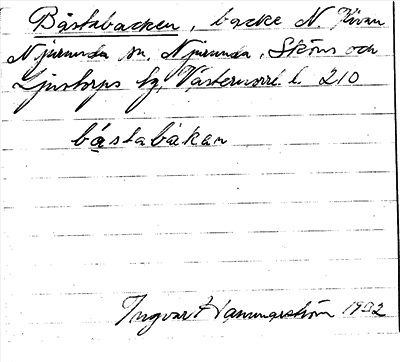 Båstabacken, backe N.
Njurunda sn. Njurunda, Sköns och
Ljustorps tg, Västernorrl. l. 210
båstabákan
Ingvar Hammarström 1932